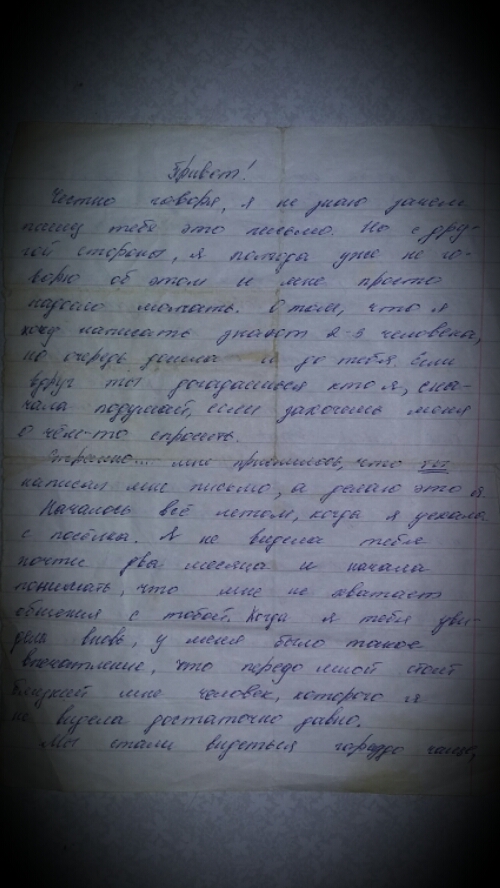 Привет!
Честно говоря, я не знаю зачем
пишу тебе это письмо. Но с дру-
гой стороны, я полгода уже не го-
ворю об этом и мне просто
надоело молчать. О том, что я
хочу написать знают 2-3 человека,
но очередь дошла и до тебя. Если
вдруг ты догадаешься кто я, сна-
чала подумай, если захочешь меня
о чём-то спросить.
Странно... мне приснилось, что ты
написал мне письмо, а делаю это я.
Началось всё летом, когда я уехала
с посёлка. Я не видела тебя
почти два месяца и начала
понимать, что мне не хватает
общения с тобой. Когда я тебя уви-
дела вновь, у меня было такое
впечатление, что передо мной стоит
близкий мне человек, которого я
не видела достаточно давно.
Мы стали видеться гораздо чаще,